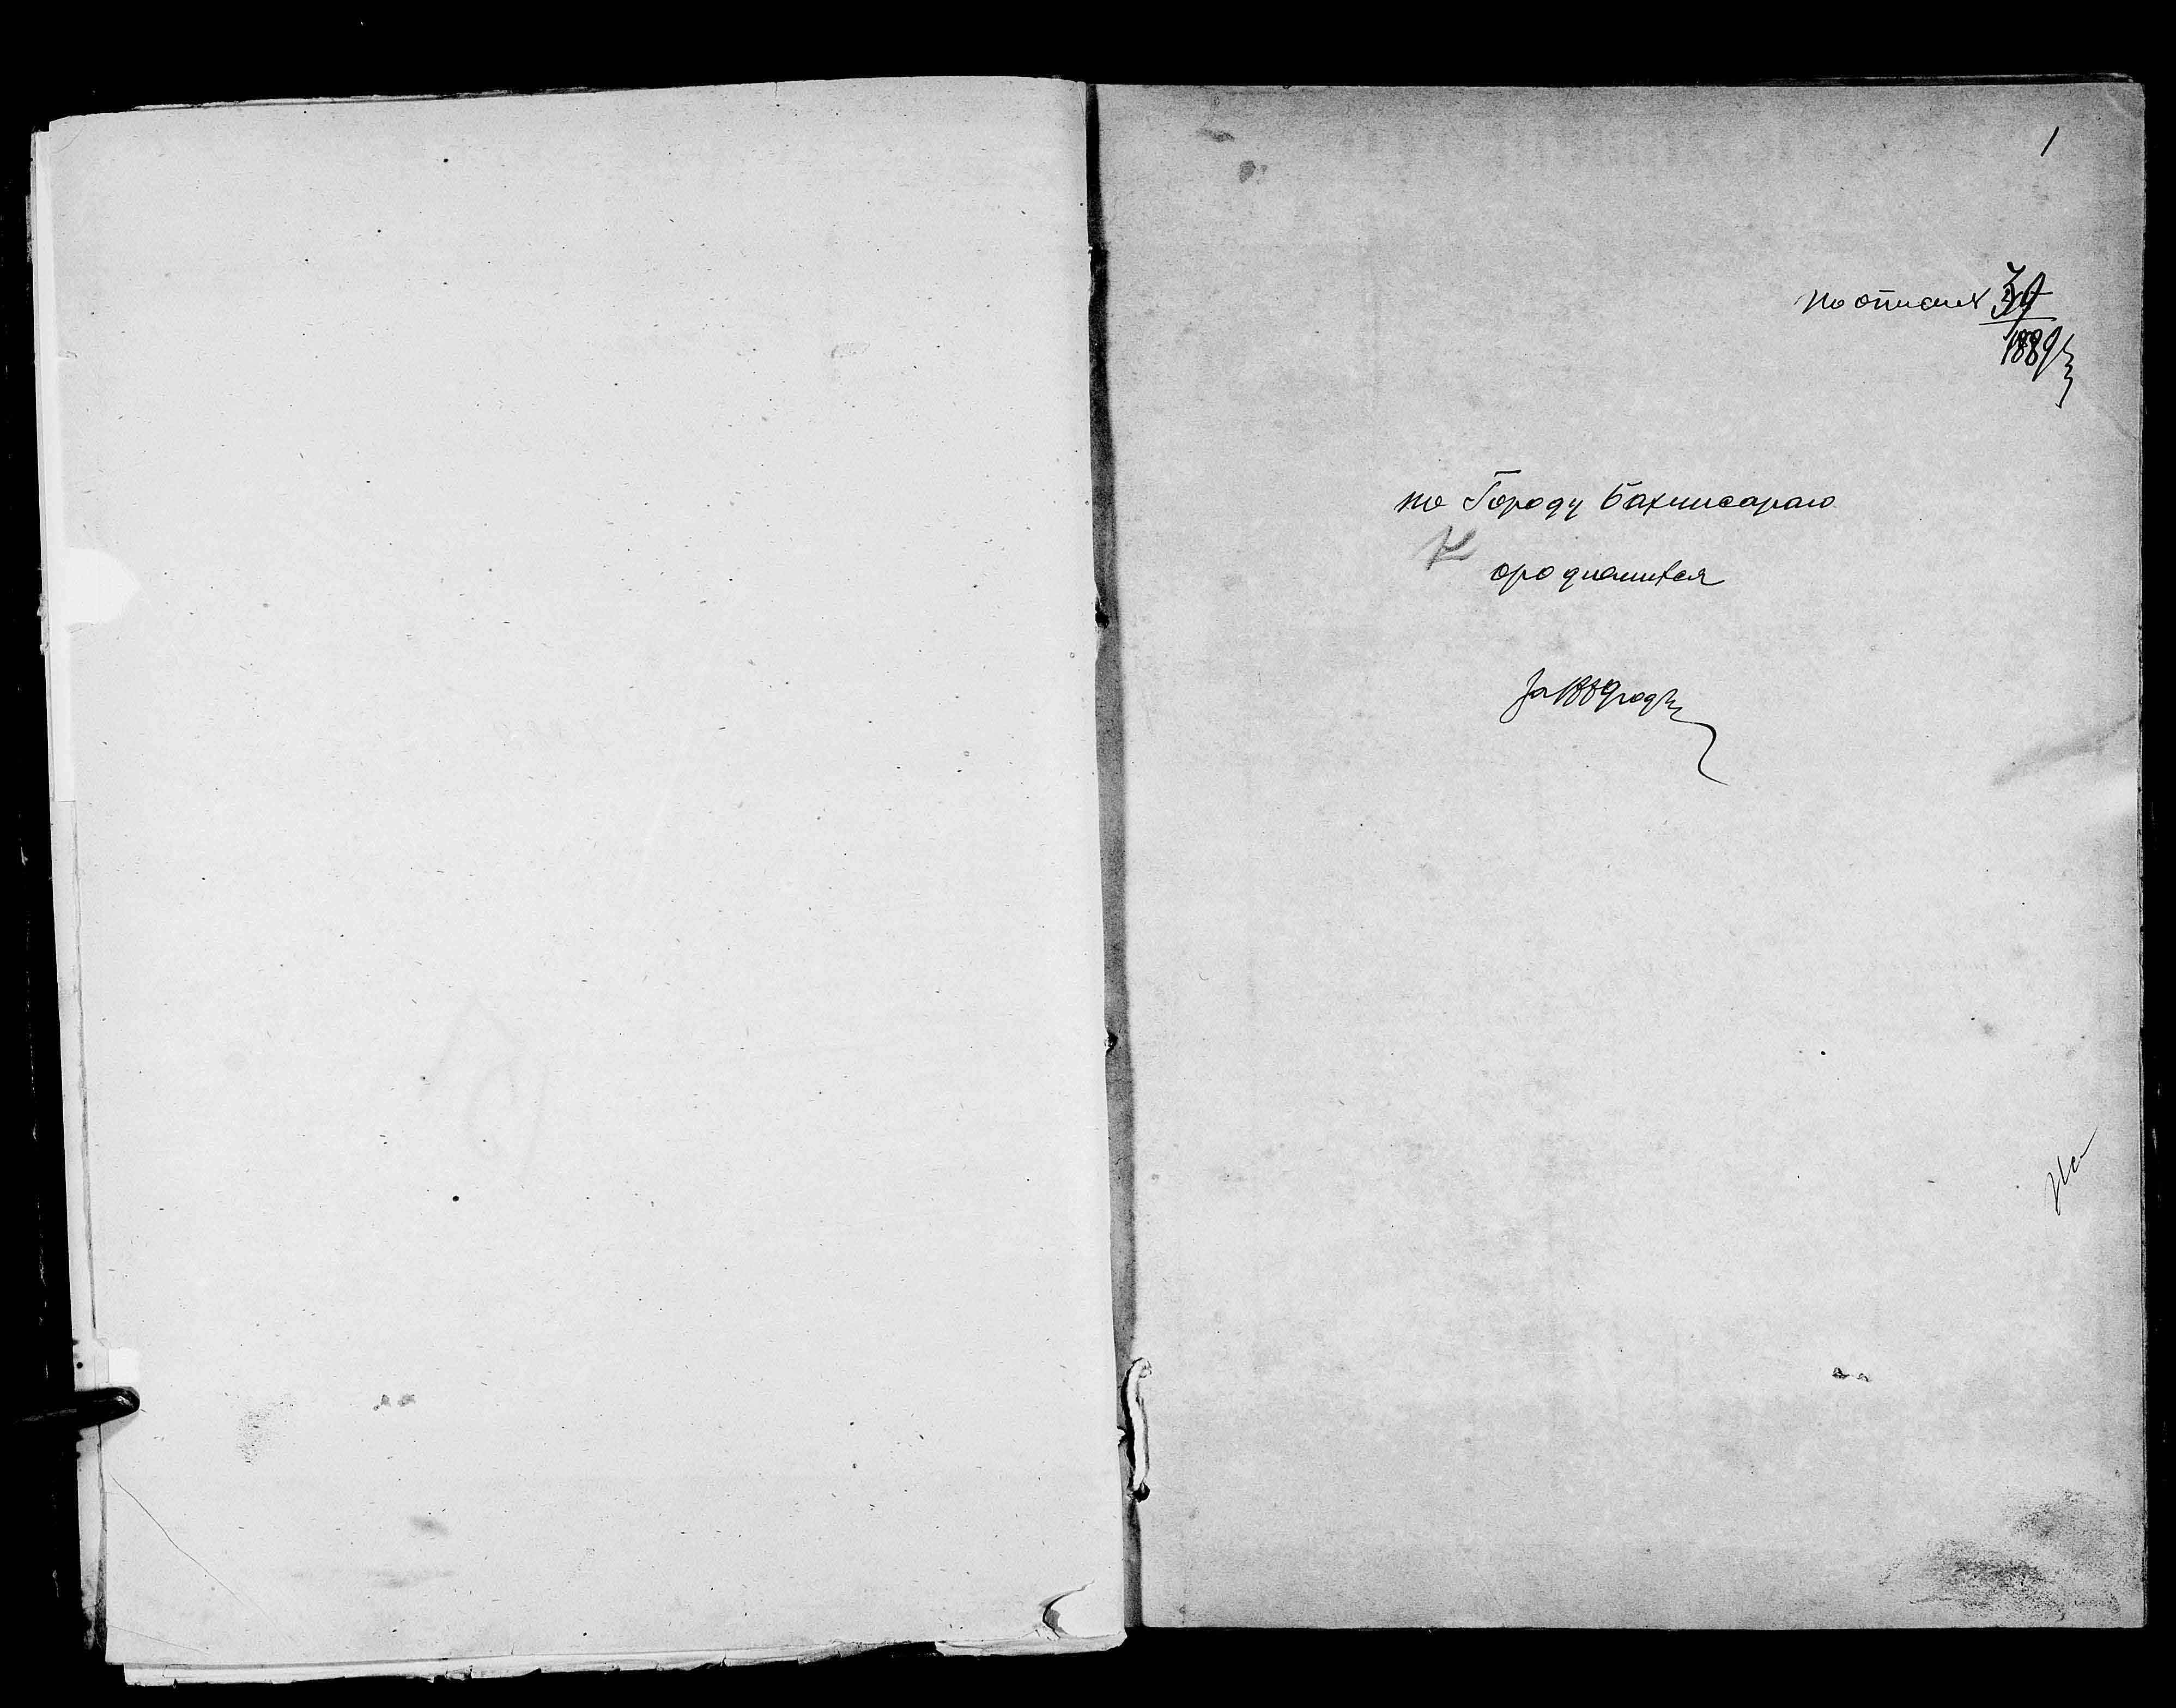 1
по описи 39
1889
по Городу Бахчисараю
о родившихся
За 1889 годъ